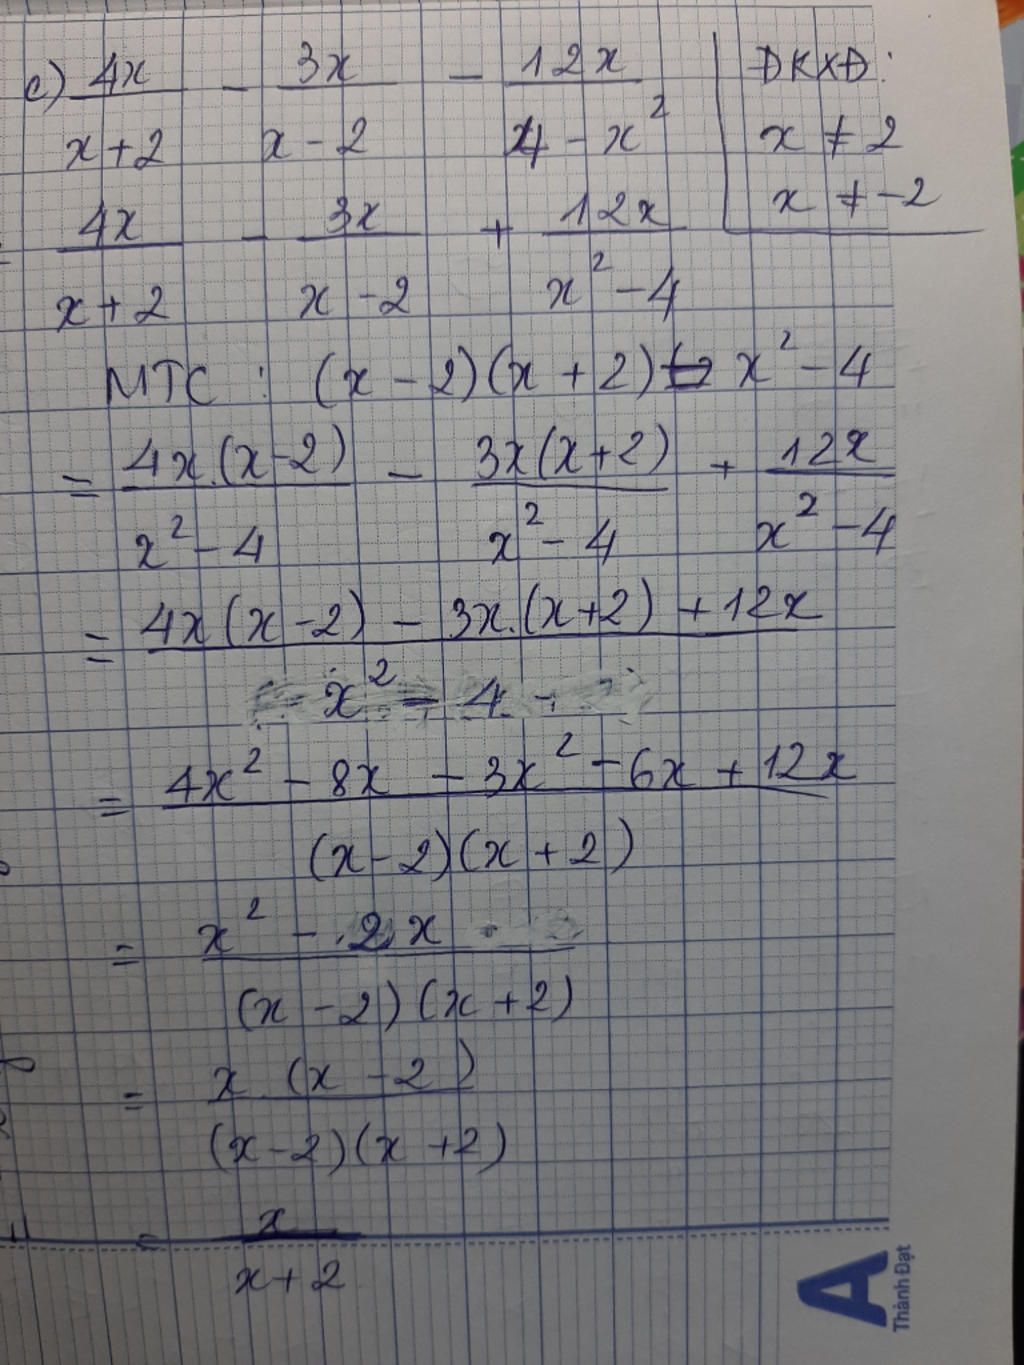 c) 4x/(x+2) - 3x/(x-2) - 12x/(4-x²)
ĐKXĐ:
x ≠ 2
x ≠ -2
4x/(x+2) - 3x/(x-2) + 12x/(x²-4)
MTC : (x-2)(x+2) x²-4
= 4x.(x-2)/(x²-4) - 3x(x+2)/(x²-4) + 12x/(x²-4)
= (4x(x-2) - 3x.(x+2) + 12x)/(x²-4)
= (4x² - 8x - 3x² - 6x + 12x)/((x-2)(x+2))
= (x² - 2x)/((x-2)(x+2))
= x.(x-2)/((x-2)(x+2))
= x/(x+2)
A
Thành Đạt